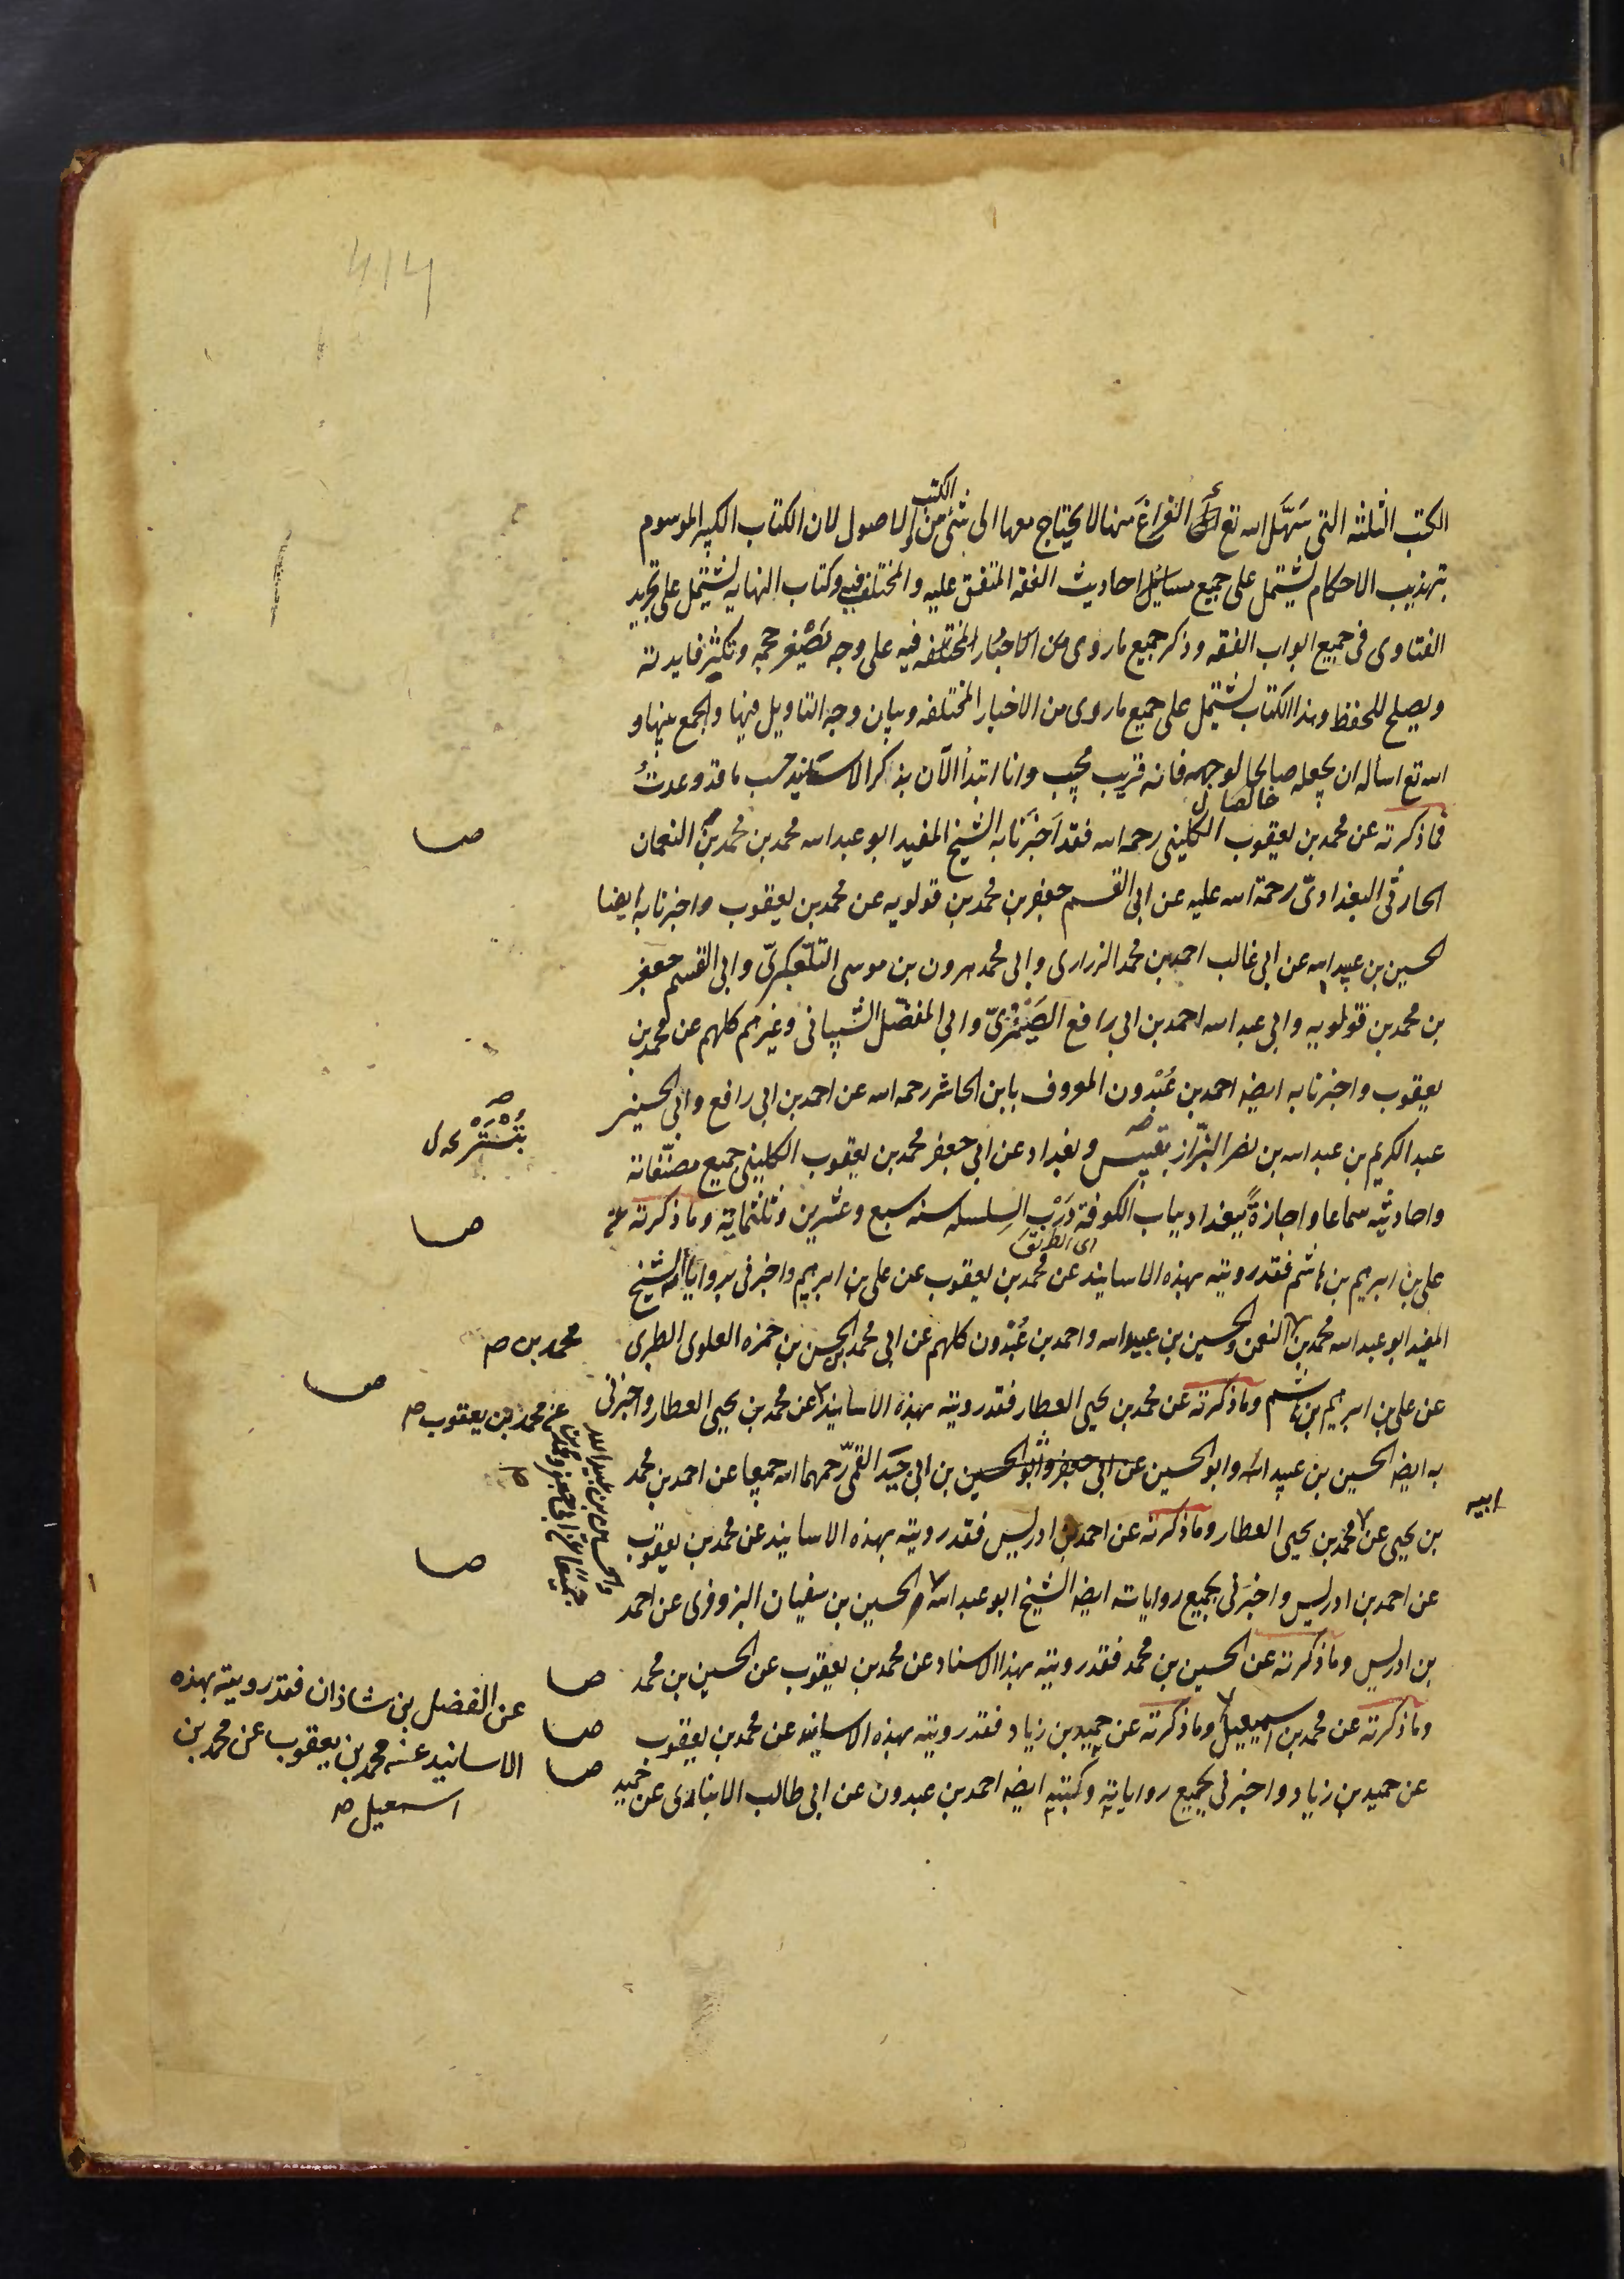 الكتب الثلثه التى سَهَّل الله تع الفراغَ منها لا يحتاج معها الى شئ من الكتب والاصول لان الكتاب الكبير الموسوم
بتهذيب الاحكام يشتمل على جميع احاديث الفقه المتفق عليه والمختلف فيه وكتاب النهايه يشتمل على تجريد
الفتاوى فى جميع ابواب الفقه وذكر جميع ما روى من الاخبار المختلفه فيه على وجه يَصْغر حجمه وتكثر فايدته
ويصلح للحفظ وهذا الكتاب يشتمل على جميع ما روى من الاخبار المختلفه وبيان وجه التاويل فيها والجمع بينها و
الله تع اساله ان يجعله صالحا لوجهه فانه قريب مجيب وانا ابتدأ الآن بذكر الاسانيد حسب ما قد وعدتُ
خالصا ل
فما ذكرته عن محمد بن يعقوب الكلينى رحمه الله فقد اَخبَرَنا به الشيخ المفيد ابو عبد الله محمد بن محمد بن النعمان
صا
الحارثى البغدادىّ رحمة الله عليه عن ابى القسم جعفر بن محمد بن قولويه عن محمد بن يعقوب واخبرنا به ايضا
الحسين بن عبيد الله عن ابى غالب احمد بن محمد الزرارى وابى محمد هرون بن موسى التلعكبرىّ وابى القسم جعفر
بن محمد بن قولويه وابى عبد الله احمد بن ابى رافع الصَيْمَرىّ وابى المفضّل الشيبانى وغيرهم كلهم عن محمد بن
يعقوب واخبرنا به ايضه احمد بن عُبْدون المعروف بابن الحاشر رحمه الله عن احمد بن ابى رافع وابى الحسين
عبد الكريم بن عبد الله بن نصر البزّاز بتنيس وبغداد عن ابى جعفر محمد بن يعقوب الكلينى جميع مصنّفاته
بتُسْتَرْ
واحاديثه سماعا واجازةً ببغداد بباب الكوفة دَرْب السلسله سنه سبع وعشرين وثلثمائة وما ذكرته عن
صا
اى الطريق
على بن ابرهيم بن هاشم فقد رويته بهذه الاسانيد عن محمد بن يعقوب عن على بن ابرهيم واخبرنى برواياته الشيخ
المفيد ابو عبد الله محمد بن النعمن والحسين بن عبيد الله واحمد بن عُبْدون كلهم عن ابى محمد الحسن بن حمزه العلوى الطبرى
محمد بن صح
عن على بن ابرهيم بن هاشم وما ذكرته عن محمد بن يحيى العطار فقد رويته بهذه الاسانيد عن محمد بن يحيى العطار واخبرنى
صا
عن محمد بن يعقوب صح
به ايضه الحسين بن عبيد الله وابو الحسين عن ابى جعفر وابو الحسين بن ابى جيد القمىّ رحمهما الله جميعا عن احمد بن محمد
ابيه
بن يحيى عن محمد بن يحيى العطار وما ذكرته عن احمد بن ادريس فقد رويته بهذه الاسانيد عن محمد بن يعقوب
صا
عن احمد بن ادريس واخبرنى بجميع رواياته ايضه الشيخ ابو عبد الله الحسين بن سفيان البزوفرى عن احمد
بن ادريس وما ذكرته عن الحسين بن محمد فقد رويته بهذا الاسناد عن محمد بن يعقوب عن الحسين بن محمد
صا
وما ذكرته عن محمد بن اسمعيل وما ذكرته عن حميد بن زياد فقد رويته بهذه الاسانيد عن محمد بن يعقوب
صا
عن حميد بن زياد واخبرنى بجميع رواياته وكتبه ايضه احمد بن عبدون عن ابى طالب الانبارى عن حميد
صا
عن الفضل بن شاذان فقد رويته بهذه
الاسانيد عنه محمد بن يعقوب عن محمد بن
اسمعيل صح